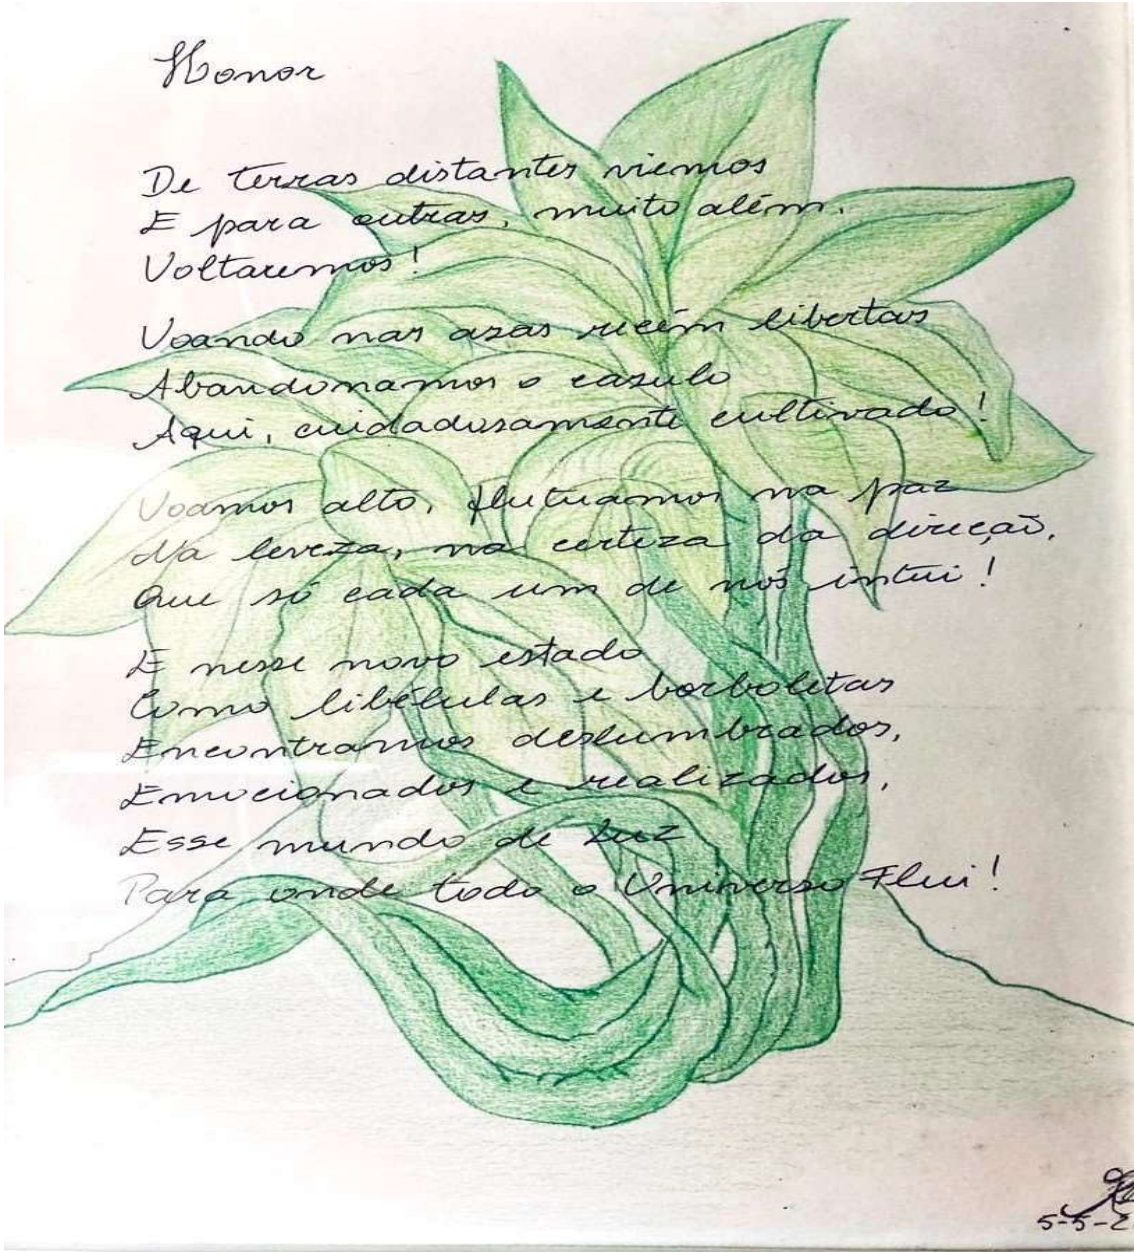 Honor
De terras distantes viemos
E para outras, muito além,
Voltaremos!
Voando nas azas recém libertas
Abandonamos o casulo
Aqui, cuidadosamente cultivado!
Voamos alto, flutuamos na paz
Na leveza, na certeza da direção,
Que só cada um de nós intui!
E nesse novo estado
Como libélulas e borboletas
Encontramos deslumbrados,
Emocionados e realizados,
Esse mundo de Luz
Para onde todo o Universo Flui!
5-5-2